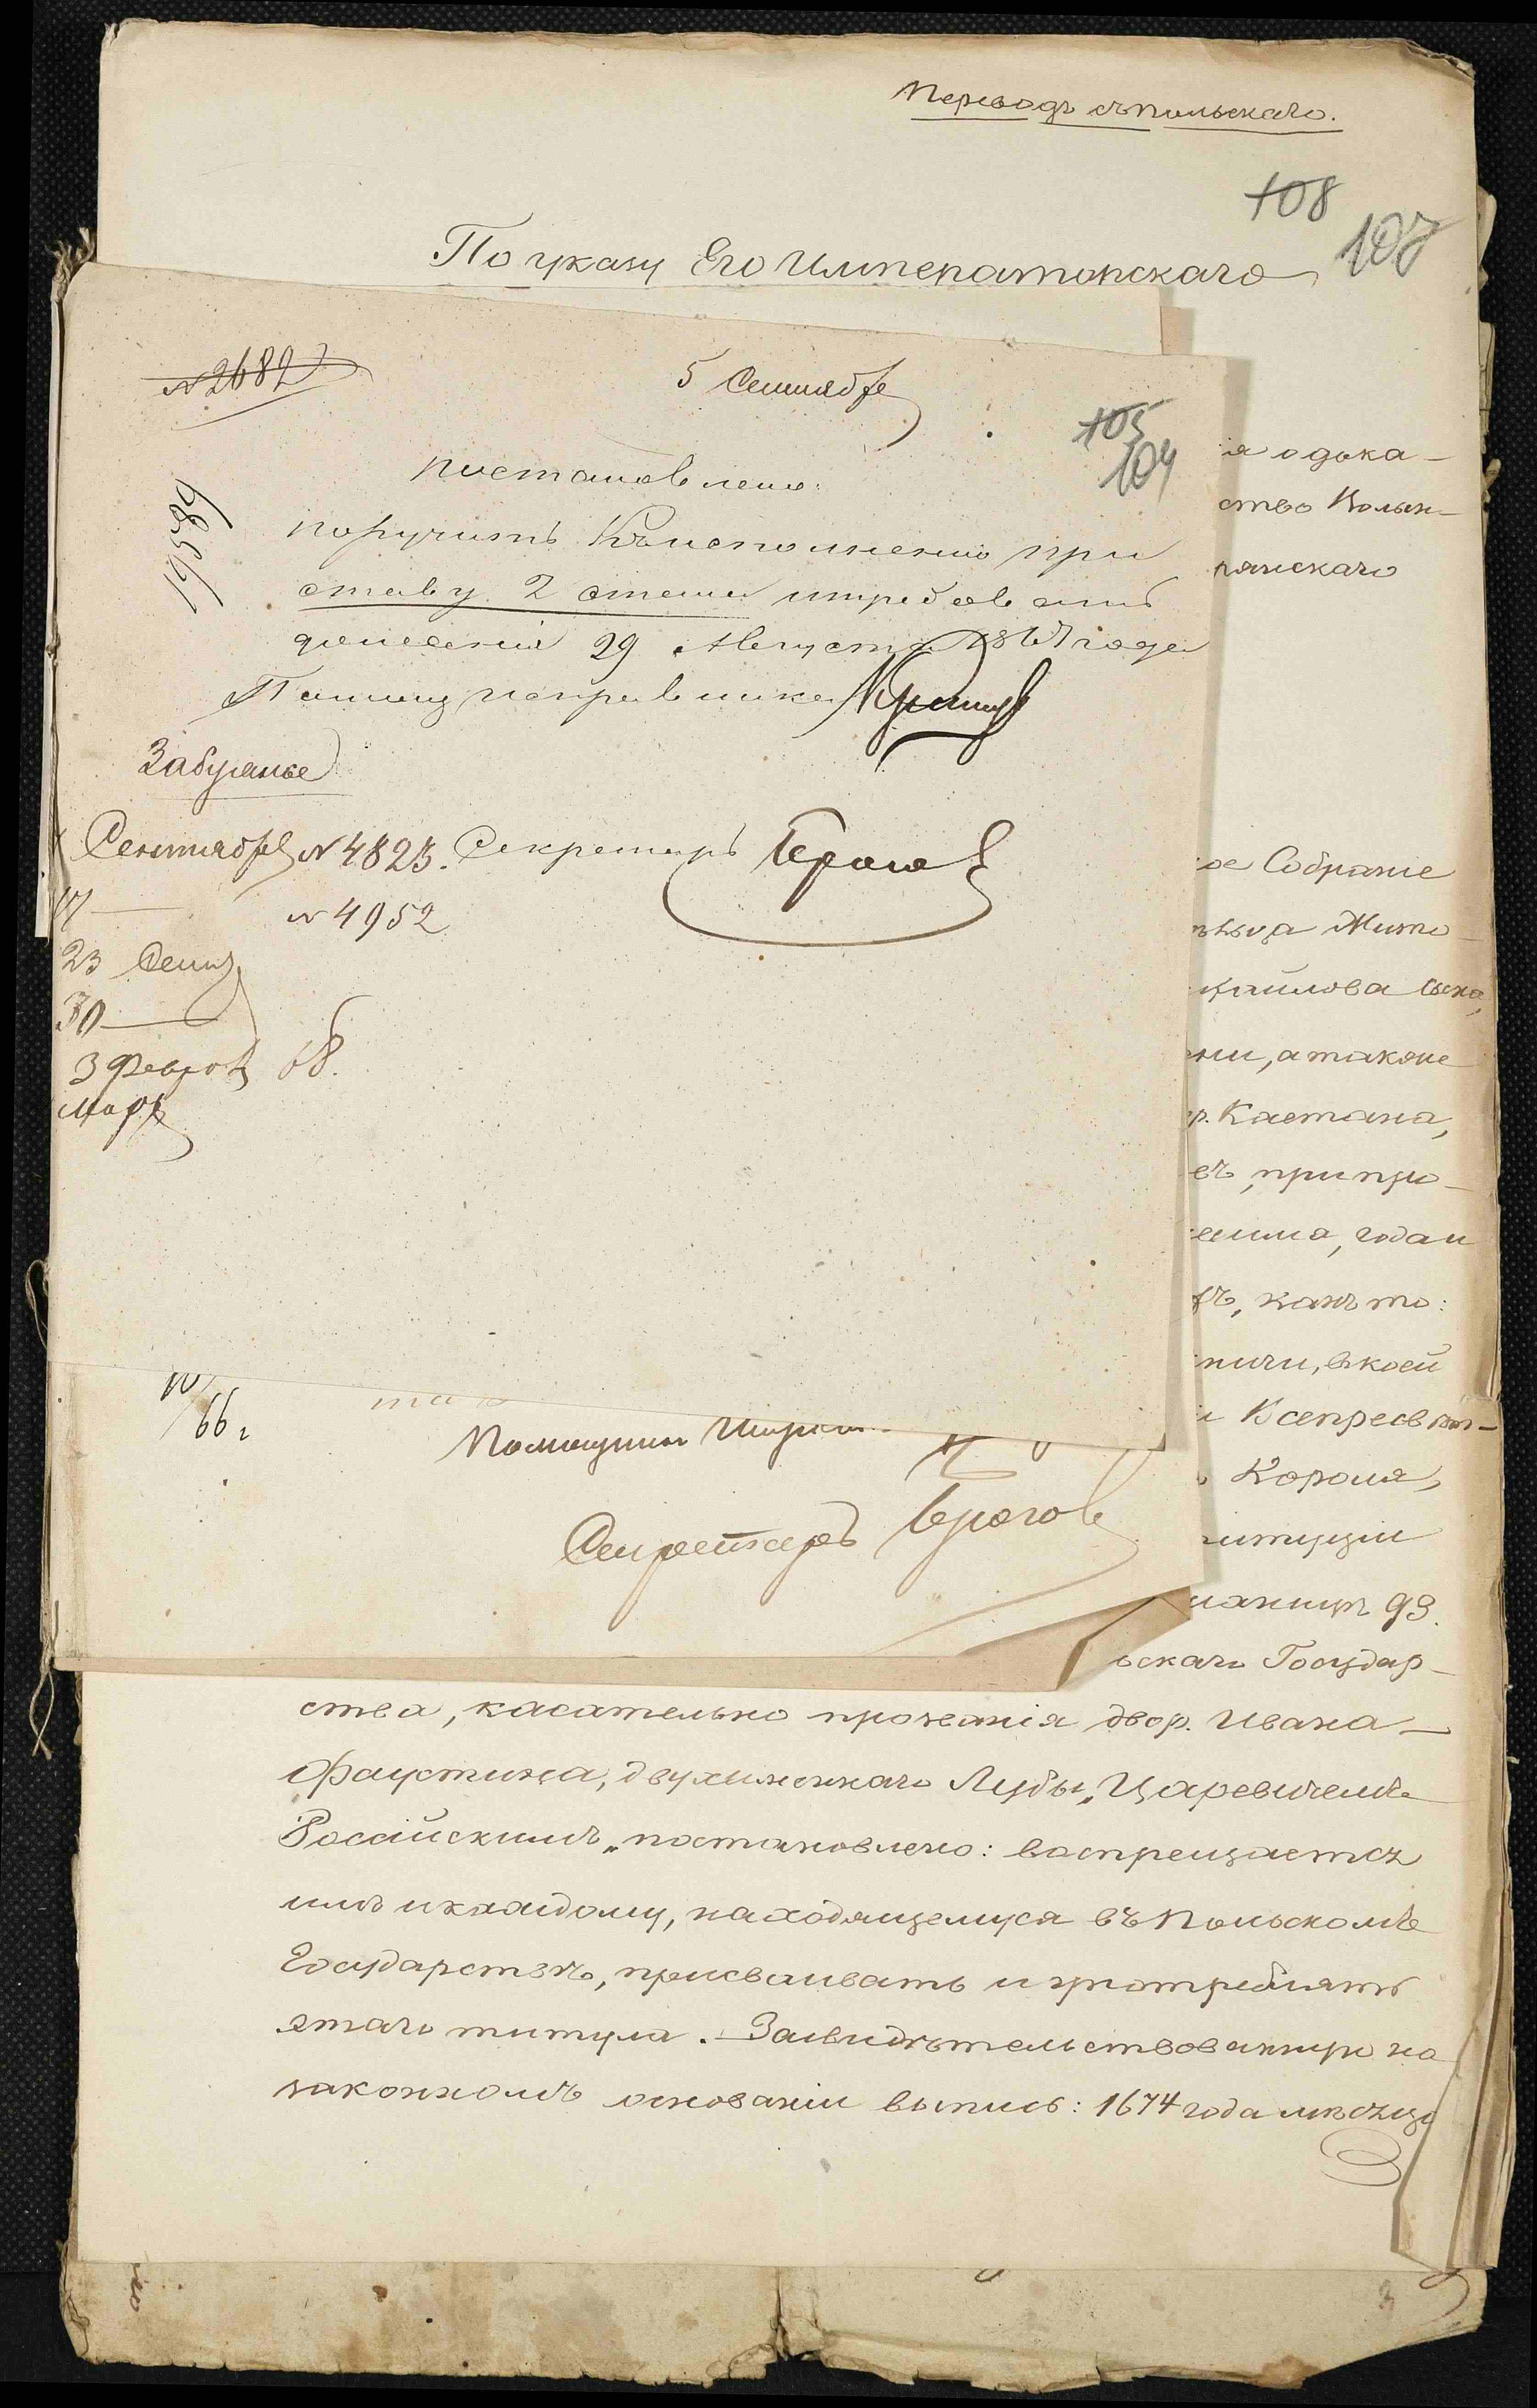 Переводъ съ польскаго.
108
107
По указу Его Императорскаго
№ 2682
5 Сентября
105
104
19589
постановлено:
поручить къ исполненію при
ставу 2 стана истребовать
донесенія 29 Августа 1867 года
Помощ исправника
Забуянье
Сентября № 4823. Секретарь
17 — № 4952
23 Сент
30 —
3 Февр 68.
Март
10/66 г
Помощникъ
Секретарь
ія о дока-
ство Волын-
рянскаго
ое Собраніе
Жито-
хайлова сына,
ми, а также
р. Каетана,
въ, при про-
года и
какъ то:
въ коей
и Всепресвѣт-
Короля,
титуціи
страницѣ 93.
льскаго Государ-
ства, касательно прозванія двор. Ивана-
Фаустина, двухименнаго Лубы, „Царевичемъ
Россійскимъ„ постановлено: воспрещается
имъ и каждому, находящемуся въ Польскомъ
Государствѣ, присваивать и употреблять
этаго титула. Засвидѣтельствованную на
законномъ основаніи выпись: 1674 года мѣсяца